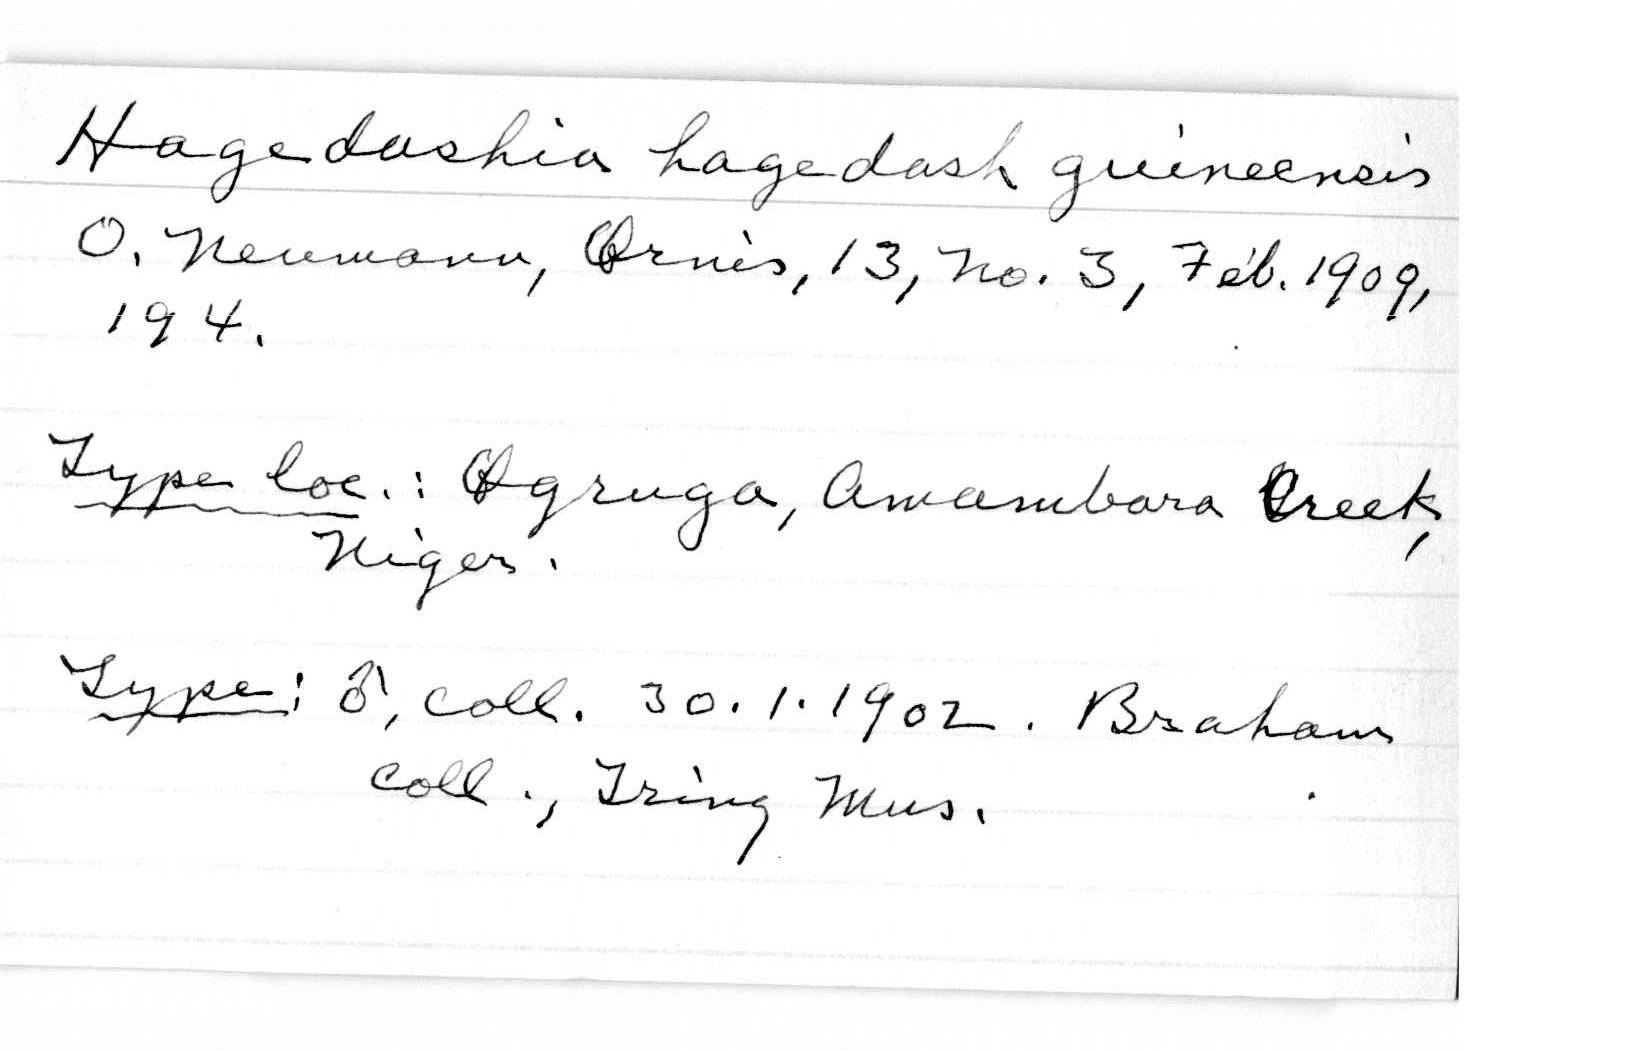 Hagedashia hagedash guineensis
O. Neumann, Ornis, 13, no. 3, Feb. 1909,
194.
Type loc.: Ogruga, Amambara Creek,
Niger.
Type: ♂, coll. 30.1.1902. Braham
coll., Tring Mus.